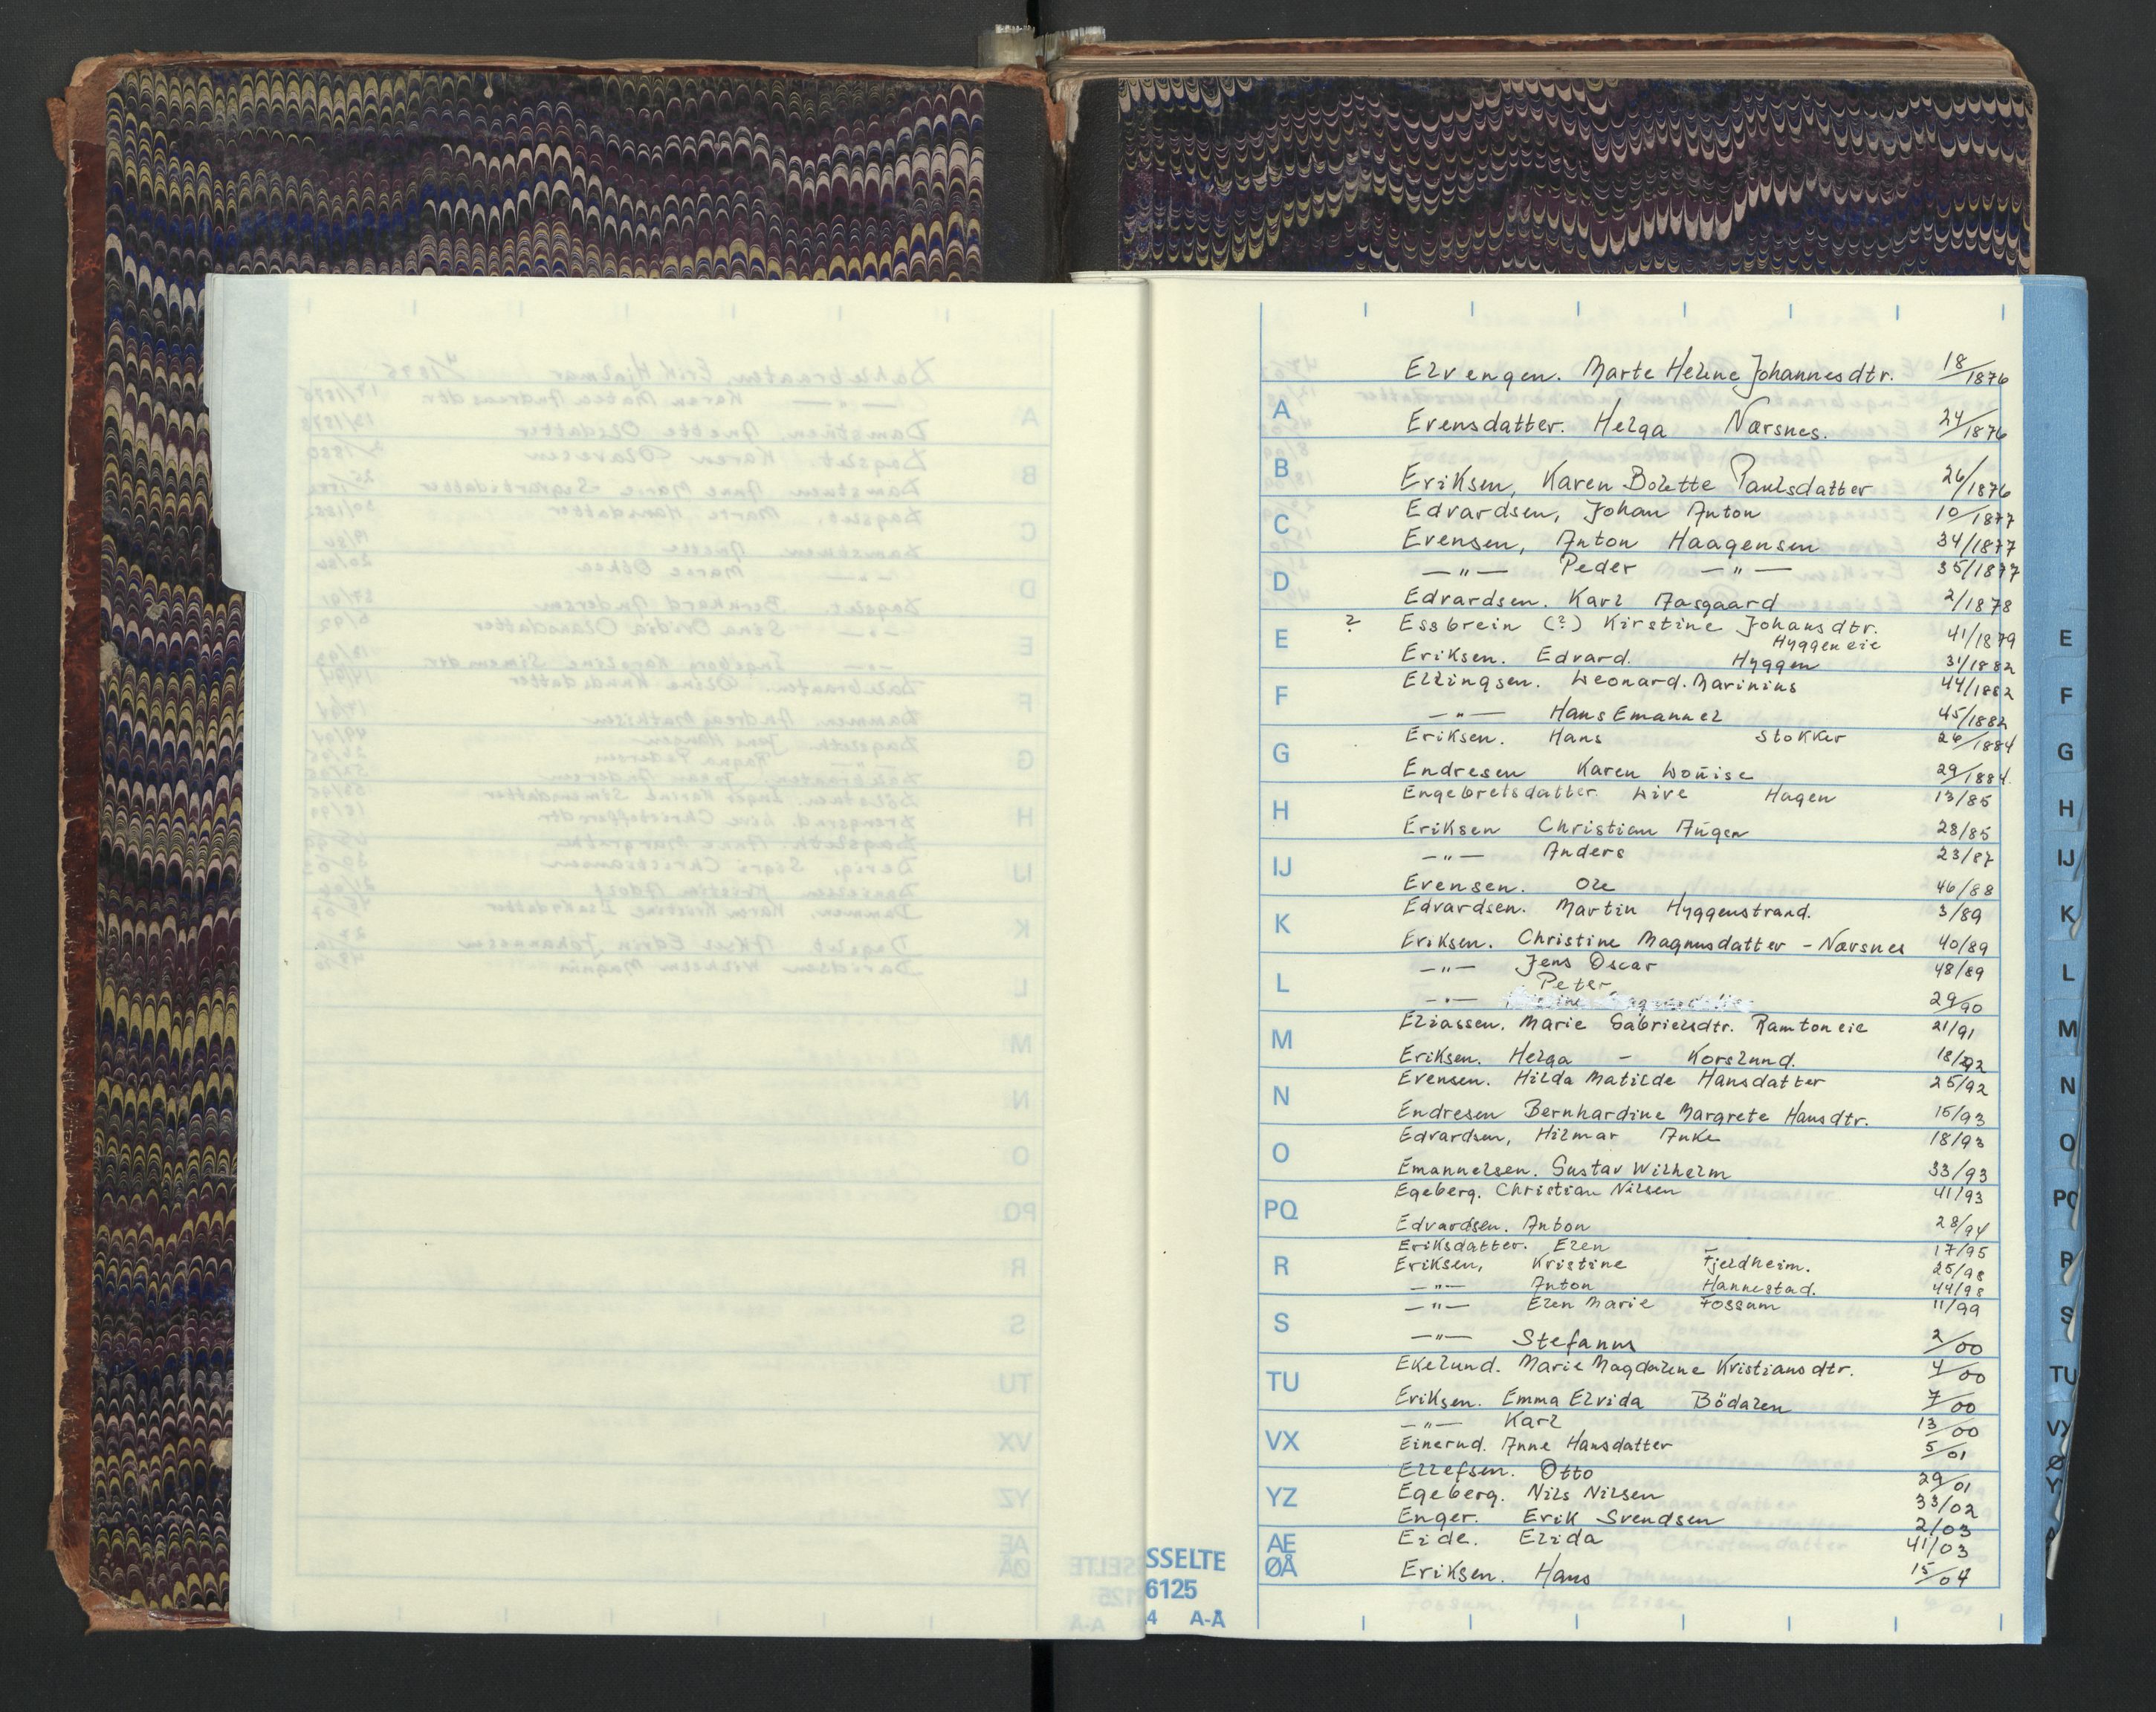 Elvengen. Marte Helene Johannesdtr. 18/1876
A
Evensdatter. Helga Nærsnes. 24/1876
B
Eriksen, Karen Bolette Paulsdatter 26/1876
C
Edvardsen, Johan Anton 10/1877
Evensen, Anton Haagensen 34/1877
D
—„— Peder —„— 35/1877
Edvardsen. Karl Aasgaard 2/1878
E
? Essbrein (?) Kirstine Johansdtr. 41/1879
Hyggeneie
Eriksen. Edvard. Hyggen 31/1882
F
Ellingsen. Leonard. Marinius 44/1882
—„— Hans Emanuel 45/1882
G
Eriksen. Hans Stokker 26/1884
Endresen Karen Louise 29/1884
H
Engebretsdatter Live Hagen 13/85
Eriksen Christian Augen 28/85
IJ
—„— Anders 23/87
Evensen. Ole 46/88
K
Edvardsen. Martin Hyggenstrand. 3/89
Eriksen. Christine Magnusdatter - Nærsnes 40/89
L
—„— Jens Oscar 48/89
—„— Peter 29/90
M
Eliassen. Marie Gabrielsdtr. Ramton eie 21/91
Eriksen. Helga - Korslund. 18/92
N
Evensen. Hilda Matilde Hansdatter 25/92
Endresen Bernhardine Margrete Hansdtr. 15/93
O
Edvardsen, Hilmar Anke 18/93
Emanuelsen. Gustav Wilhelm 33/93
PQ
Egeberg. Christian Nilsen 41/93
Edvardsen. Anton 28/94
R
Eriksdatter. Elen 17/95
Eriksen, Kristine Fjeldheim. 25/98
—„— Anton Hannestad. 44/98
S
—„— Elen Marie Fossum 11/99
—„— Stefanus 2/00
TU
Ekelund. Marie Magdalene Kristiansdtr. 4/00
Eriksen. Emma Elvida Bödalen 7/00
VX
—„— Karl 13/00
Einerud. Anne Hansdatter 5/01
YZ
Ellefsen. Otto 29/01
Egeberg. Nils Nilsen 33/02
Enger. Erik Svendsen 2/03
AE
ØÅ
Eide. Elida 41/03
Eriksen. Hans 15/04
SSELTE
6125
4 A-Å
E
F
G
H
IJ
K
L
M
N
O
PQ
R
S
TU
VX